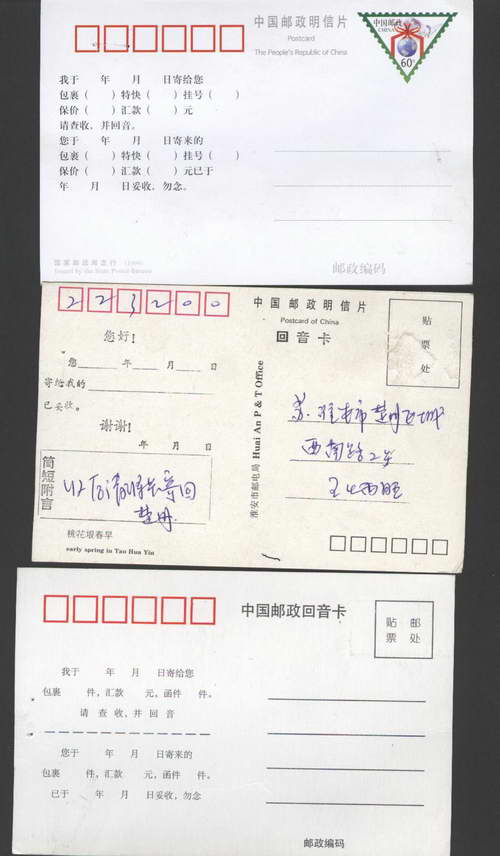 中国邮政明信片
Postcard
The People's Republic of China
中国邮政
CHINA
60分
我于 年 月 日寄给您
包裹（ ）特快（ ）挂号（ ）
保价（ ）汇款（ ）元
请查收，并回音。
您于 年 月 日寄来的
包裹（ ）特快（ ）挂号（ ）
保价（ ）汇款（ ）元已于
年 月 日妥收，勿念。
国家邮政局发行
Issued by the State Postal Bureau
邮政编码
223200
中国邮政明信片
Postcard of China
回音卡
贴
票
处
您好！
您 年 月 日
寄给我的
已妥收。
谢谢！
年 月 日
简短附言
淮安市邮电局 Huai An P & T Office
西南路
桃花垠春早
early spring in Tao Hua Yin
中国邮政回音卡
贴 邮
票 处
我于 年 月 日寄给您
包裹 件，汇款 元，函件 件。
请 查 收，并 回 音
您于 年 月 日寄来的
包裹 件，汇款 元，函件 件。
已于 年 月 日妥收，勿念
邮政编码